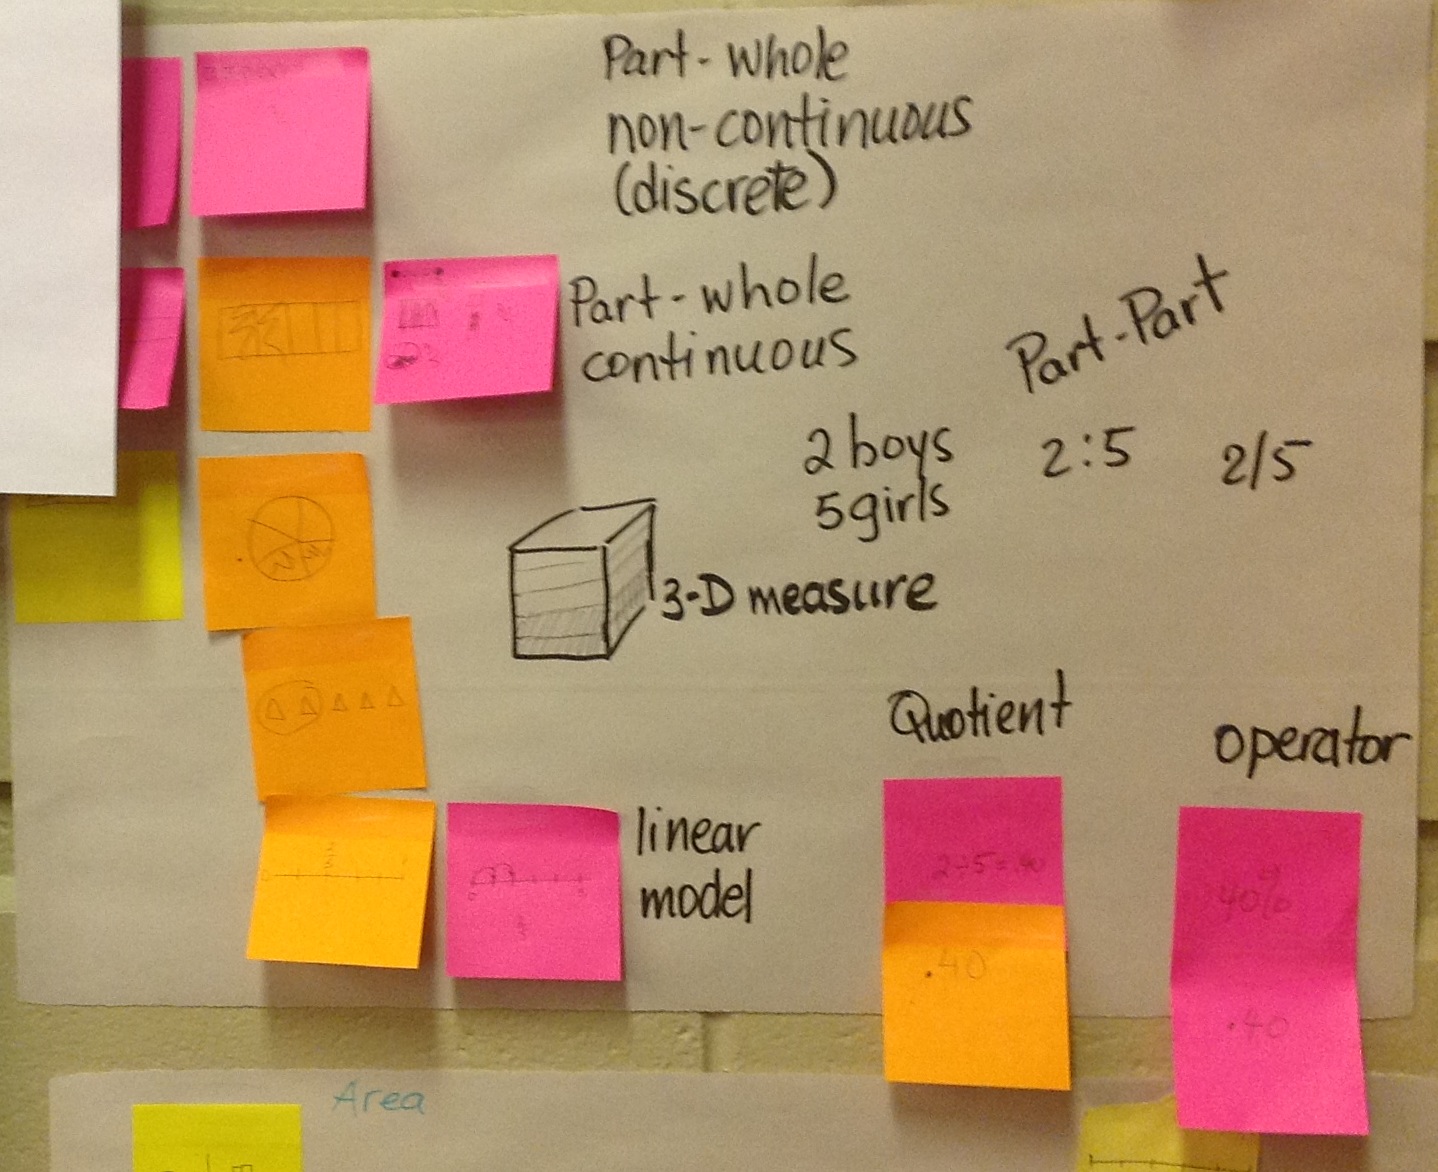 Part-whole
non-continuous
(discrete)
Part-whole
continuous
Part-Part
2 boys
5 girls
2:5
2/5
3-D measure
Quotient
operator
linear
model
2÷5=.40
.40
40%
.40
Area